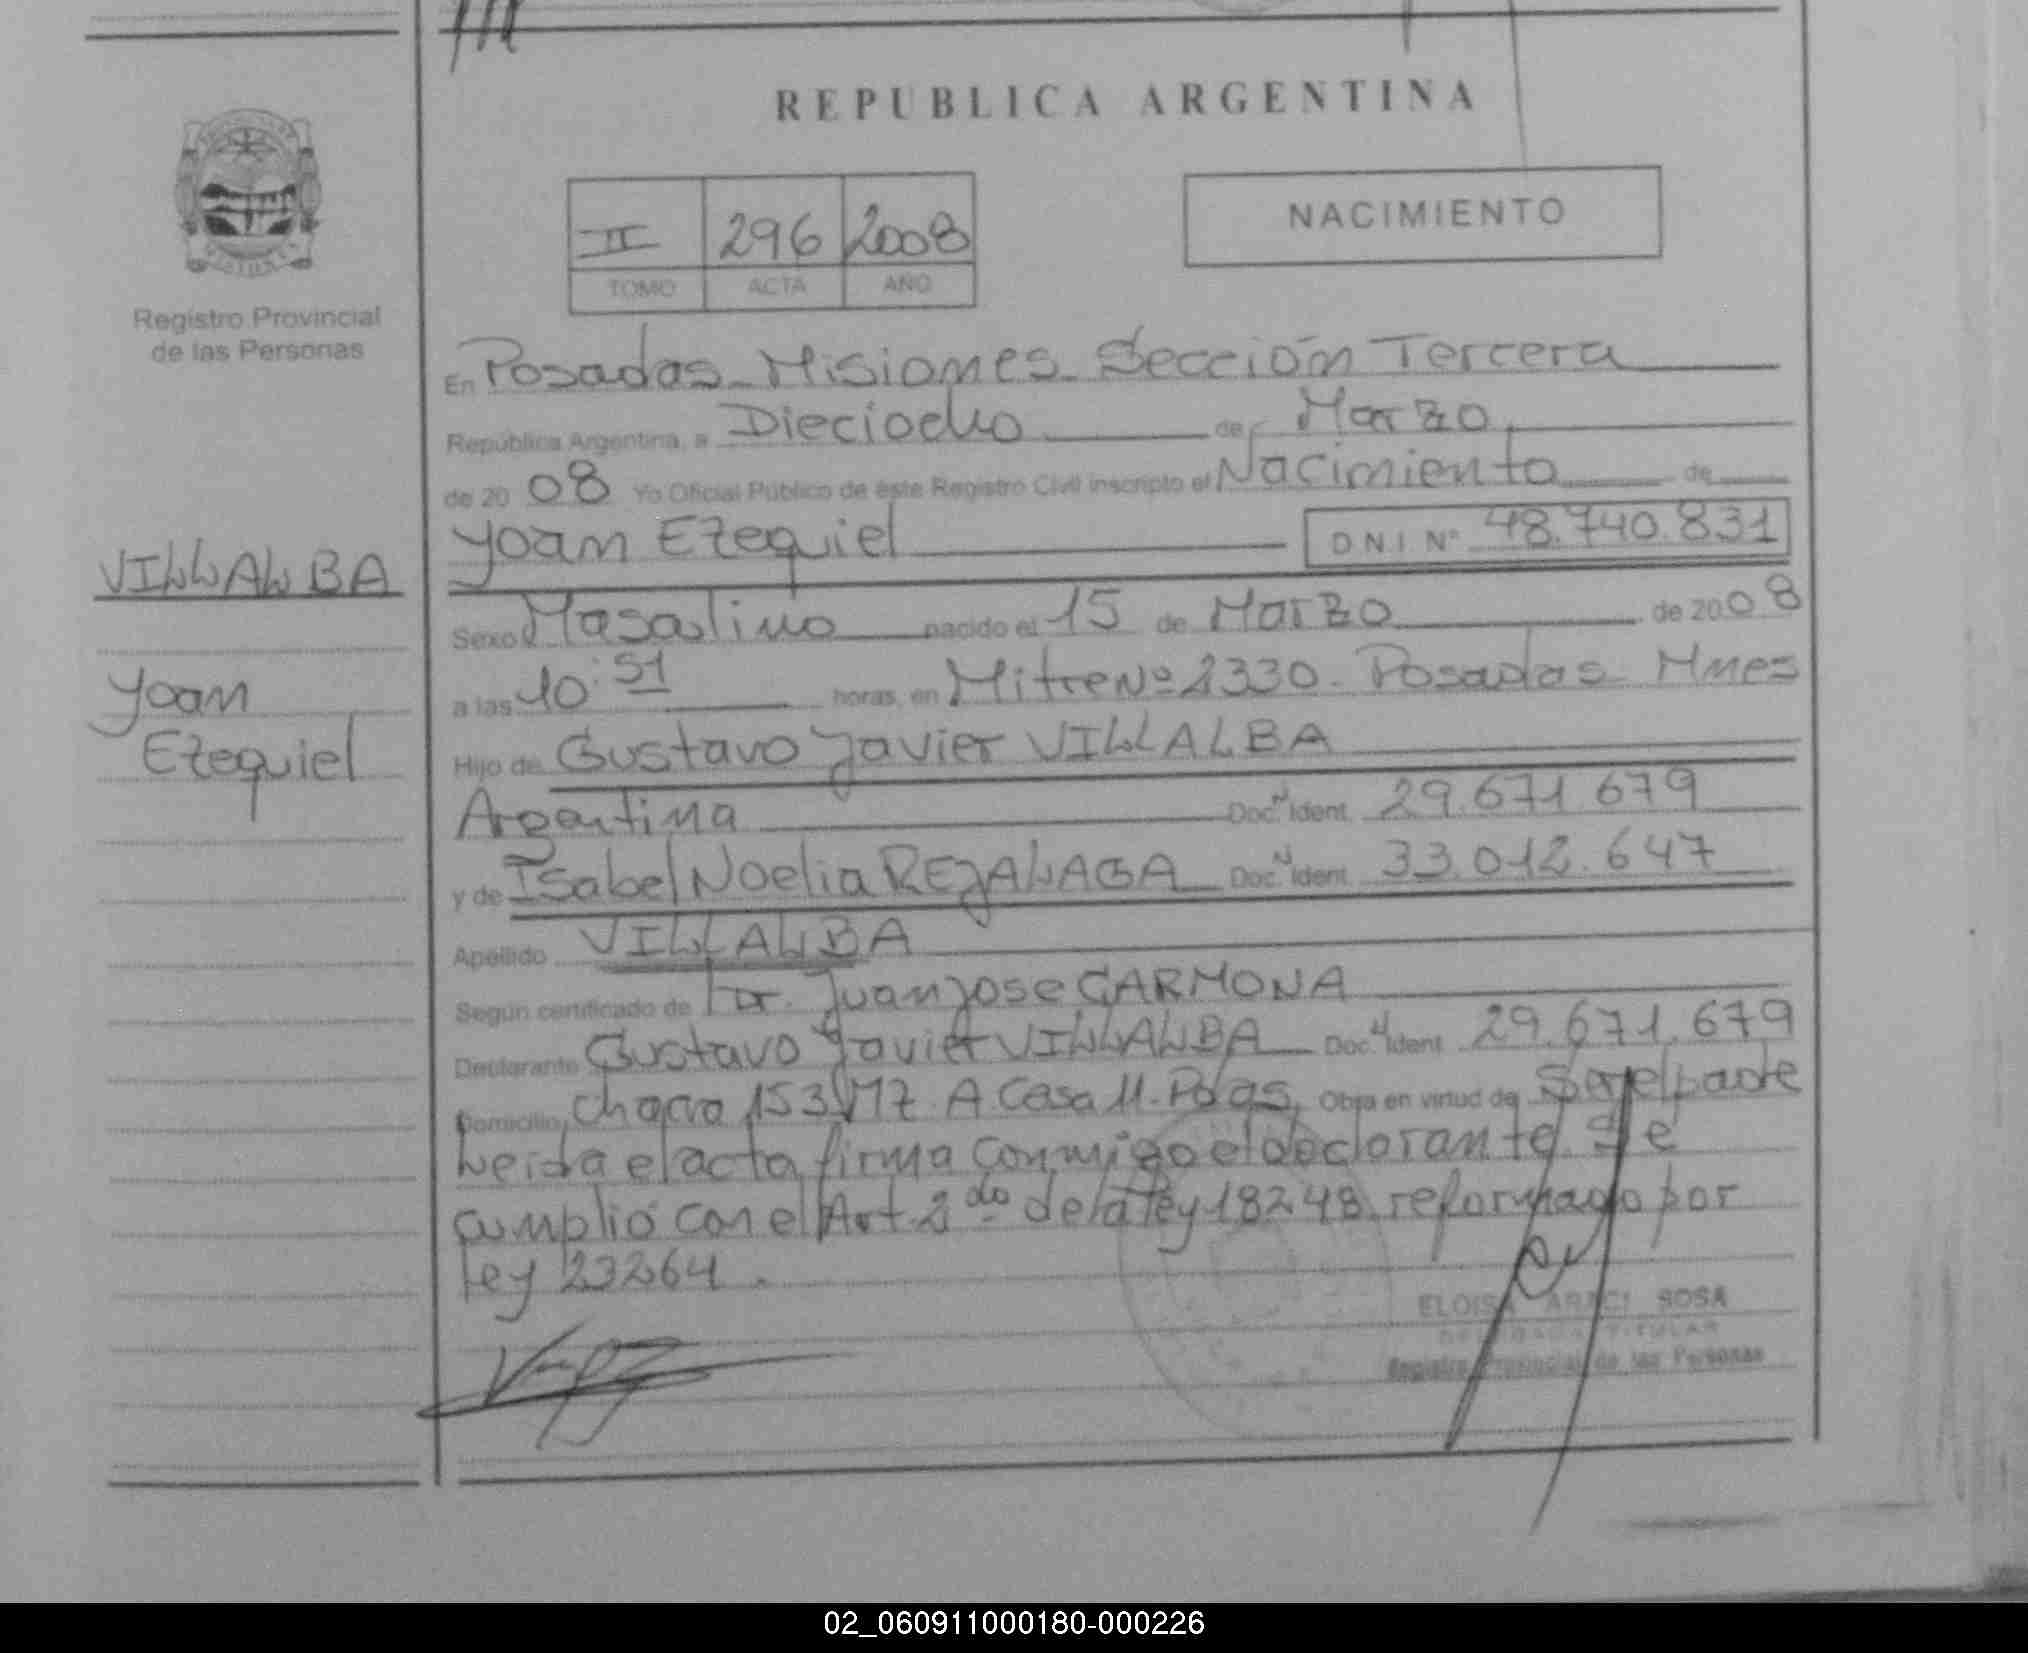 REPUBLICA ARGENTINA
II 296 2008
TOMO ACTA AÑO
NACIMIENTO
Registro Provincial
de las Personas
VILLALBA
Yoan
Ezequiel
En Posadas Misiones Sección Tercera
República Argentina, a Dieciocho de Marzo
de 2008 Yo Oficial Público de éste Registro Civil inscripto el Nacimiento de
Yoan Ezequiel DNI Nº 48.740.831
Sexo Masculino nacido el 15 de Marzo de 2008
a las 10:51 horas, en Mitre Nº 2330. Posadas Mnes
Hijo de Gustavo Javier VILLALBA
Argentina Doc. N Ident. 29.671.679
y de Isabel Noelia REJALAGA Doc. N Ident. 33.012.647
Apellido VILLALBA
Según certificado de Dr. Juan Jose CARMONA
Declarante Gustavo Javier VILLALBA Doc. N Ident. 29.671.679
Domicilio Chacra 153 MZ. A Casa 11. Pdas, Obra en virtud de Ser el padre
Leida el acta firma conmigo el declarante. Se
cumplió con el Art. 2do de la ley 18248 reformado por
ley 23264.
ELOISA ARACI SOSA
DELEGADA TITULAR
Registro Provincial de las Personas
02_060911000180-000226